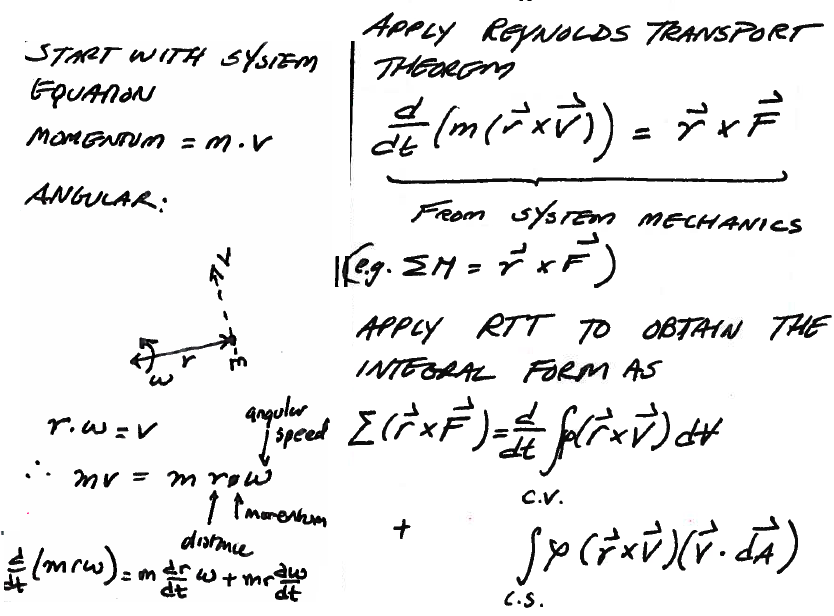 START WITH SYSTEM
EQUATION
MOMENTUM = m · V
ANGULAR:
V
r
m
ω
r · ω = V
angular
speed
∴ mv = m r • ω
momentum
distance
d/dt (mrω) = m dr/dt ω + mr dω/dt
APPLY REYNOLDS TRANSPORT
THEOREM
d/dt (m(r⃗ × V⃗)) = r⃗ × F⃗
FROM SYSTEM MECHANICS
(e.g. ΣM = r⃗ × F⃗)
APPLY RTT TO OBTAIN THE
INTEGRAL FORM AS
Σ(r⃗ × F⃗) = d/dt ∫ρ(r⃗ × V⃗) dV
C.V.
+ ∫ρ(r⃗ × V⃗)(V⃗ · dA⃗)
C.S.